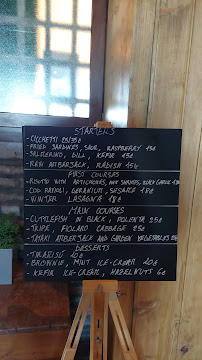 STARTERS
- CICCHETTI
- FRIED SARDINES, SAOR, RASPBERRY 15€
- SALMERINO, DILL, KEFIR 15€
- RAW AMBERJACK, RADISH 15€
FIRST COURSES
- RISOTTO WITH ARTICHOKES, BLACK GARLIC
- COD RAVIOLI, GERANIUM, 18€
- WINTER LASAGNA 18€
MAIN COURSES
- CUTTLEFISH IN BLACK, POLENTA 25€
- TRIPE, FIOLARO CABBAGE 25€
- TATAKI AMBERJACK AND GARDEN VEGETABLES
DESSERTS
- TIRAMISÙ 10€
- BROWNIE, MINT ICE-CREAM 10€
- KEFIR ICE-CREAM, HAZELNUTS 6€